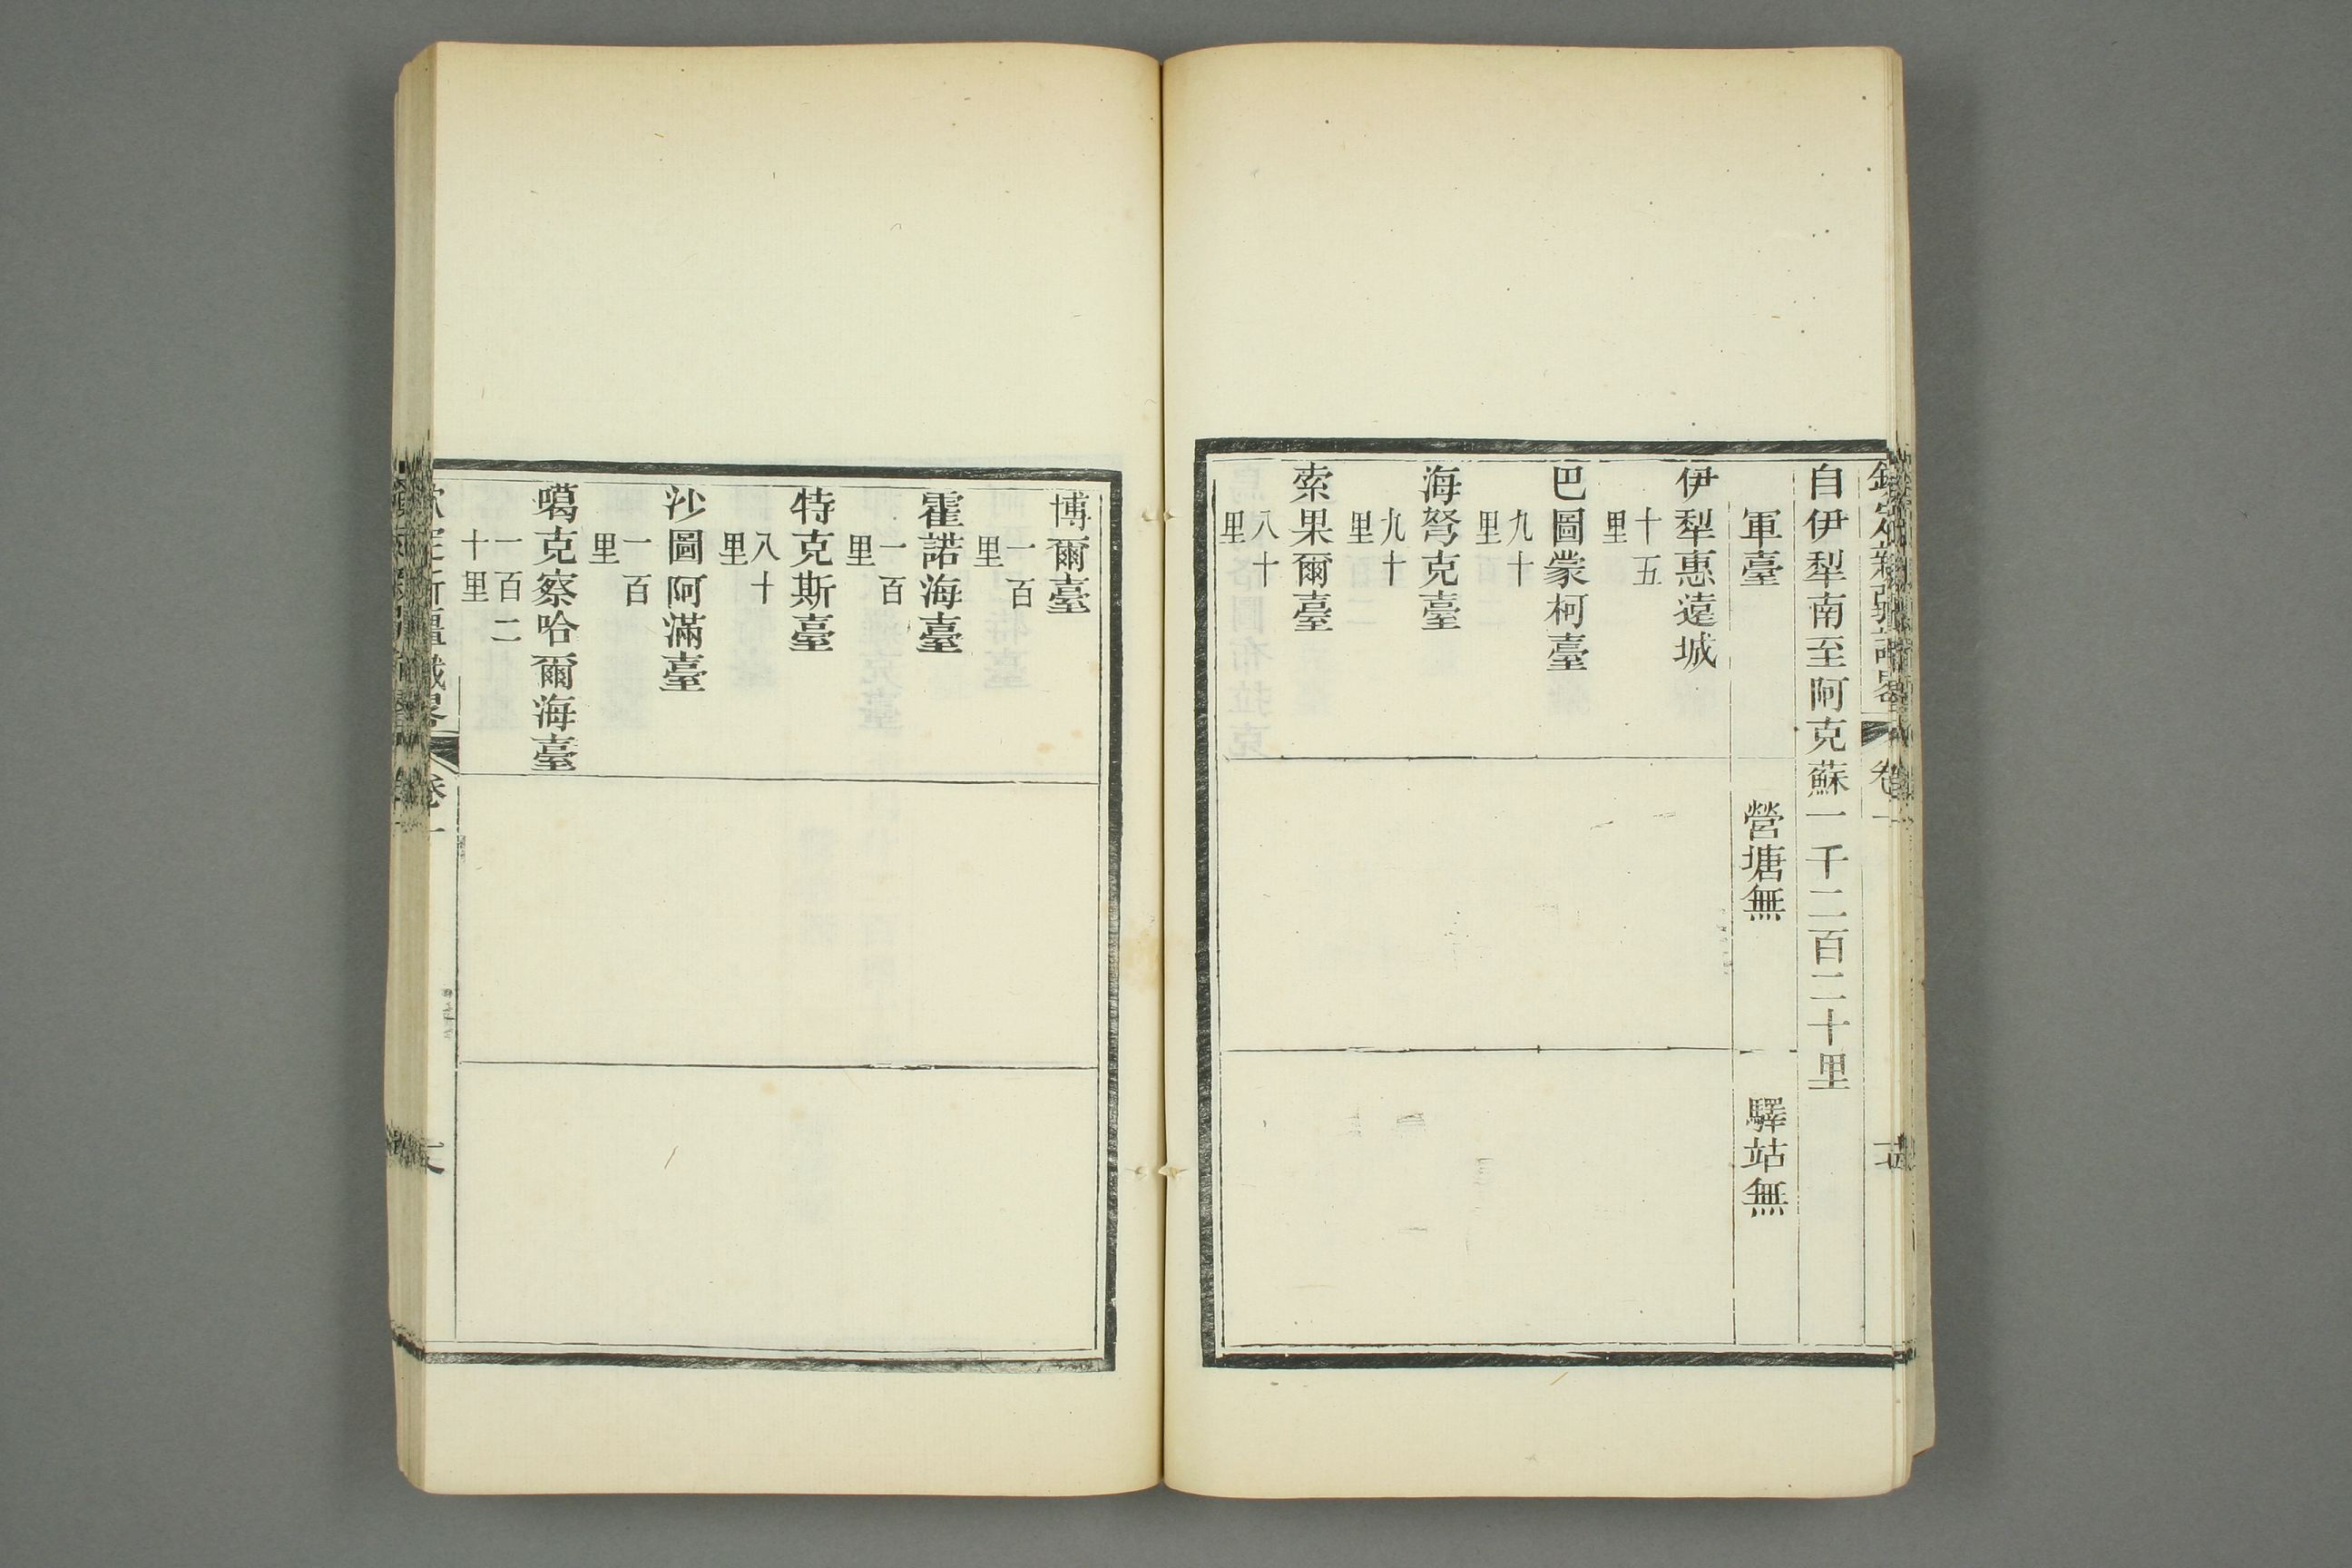 欽定新疆識畧 卷一
自伊犁南至阿克蘇一千二百二十里
軍臺 營塘無 驛站無
伊犁惠遠城
十五
里
巴圖蒙柯臺
九十
里
海弩克臺
九十
里
索果爾臺
八十
里
博爾臺
一百
里
霍諾海臺
一百
里
特克斯臺
八十
里
沙圖阿滿臺
一百
里
噶克察哈爾海臺
一百二
十里
欽定新疆識畧 卷一